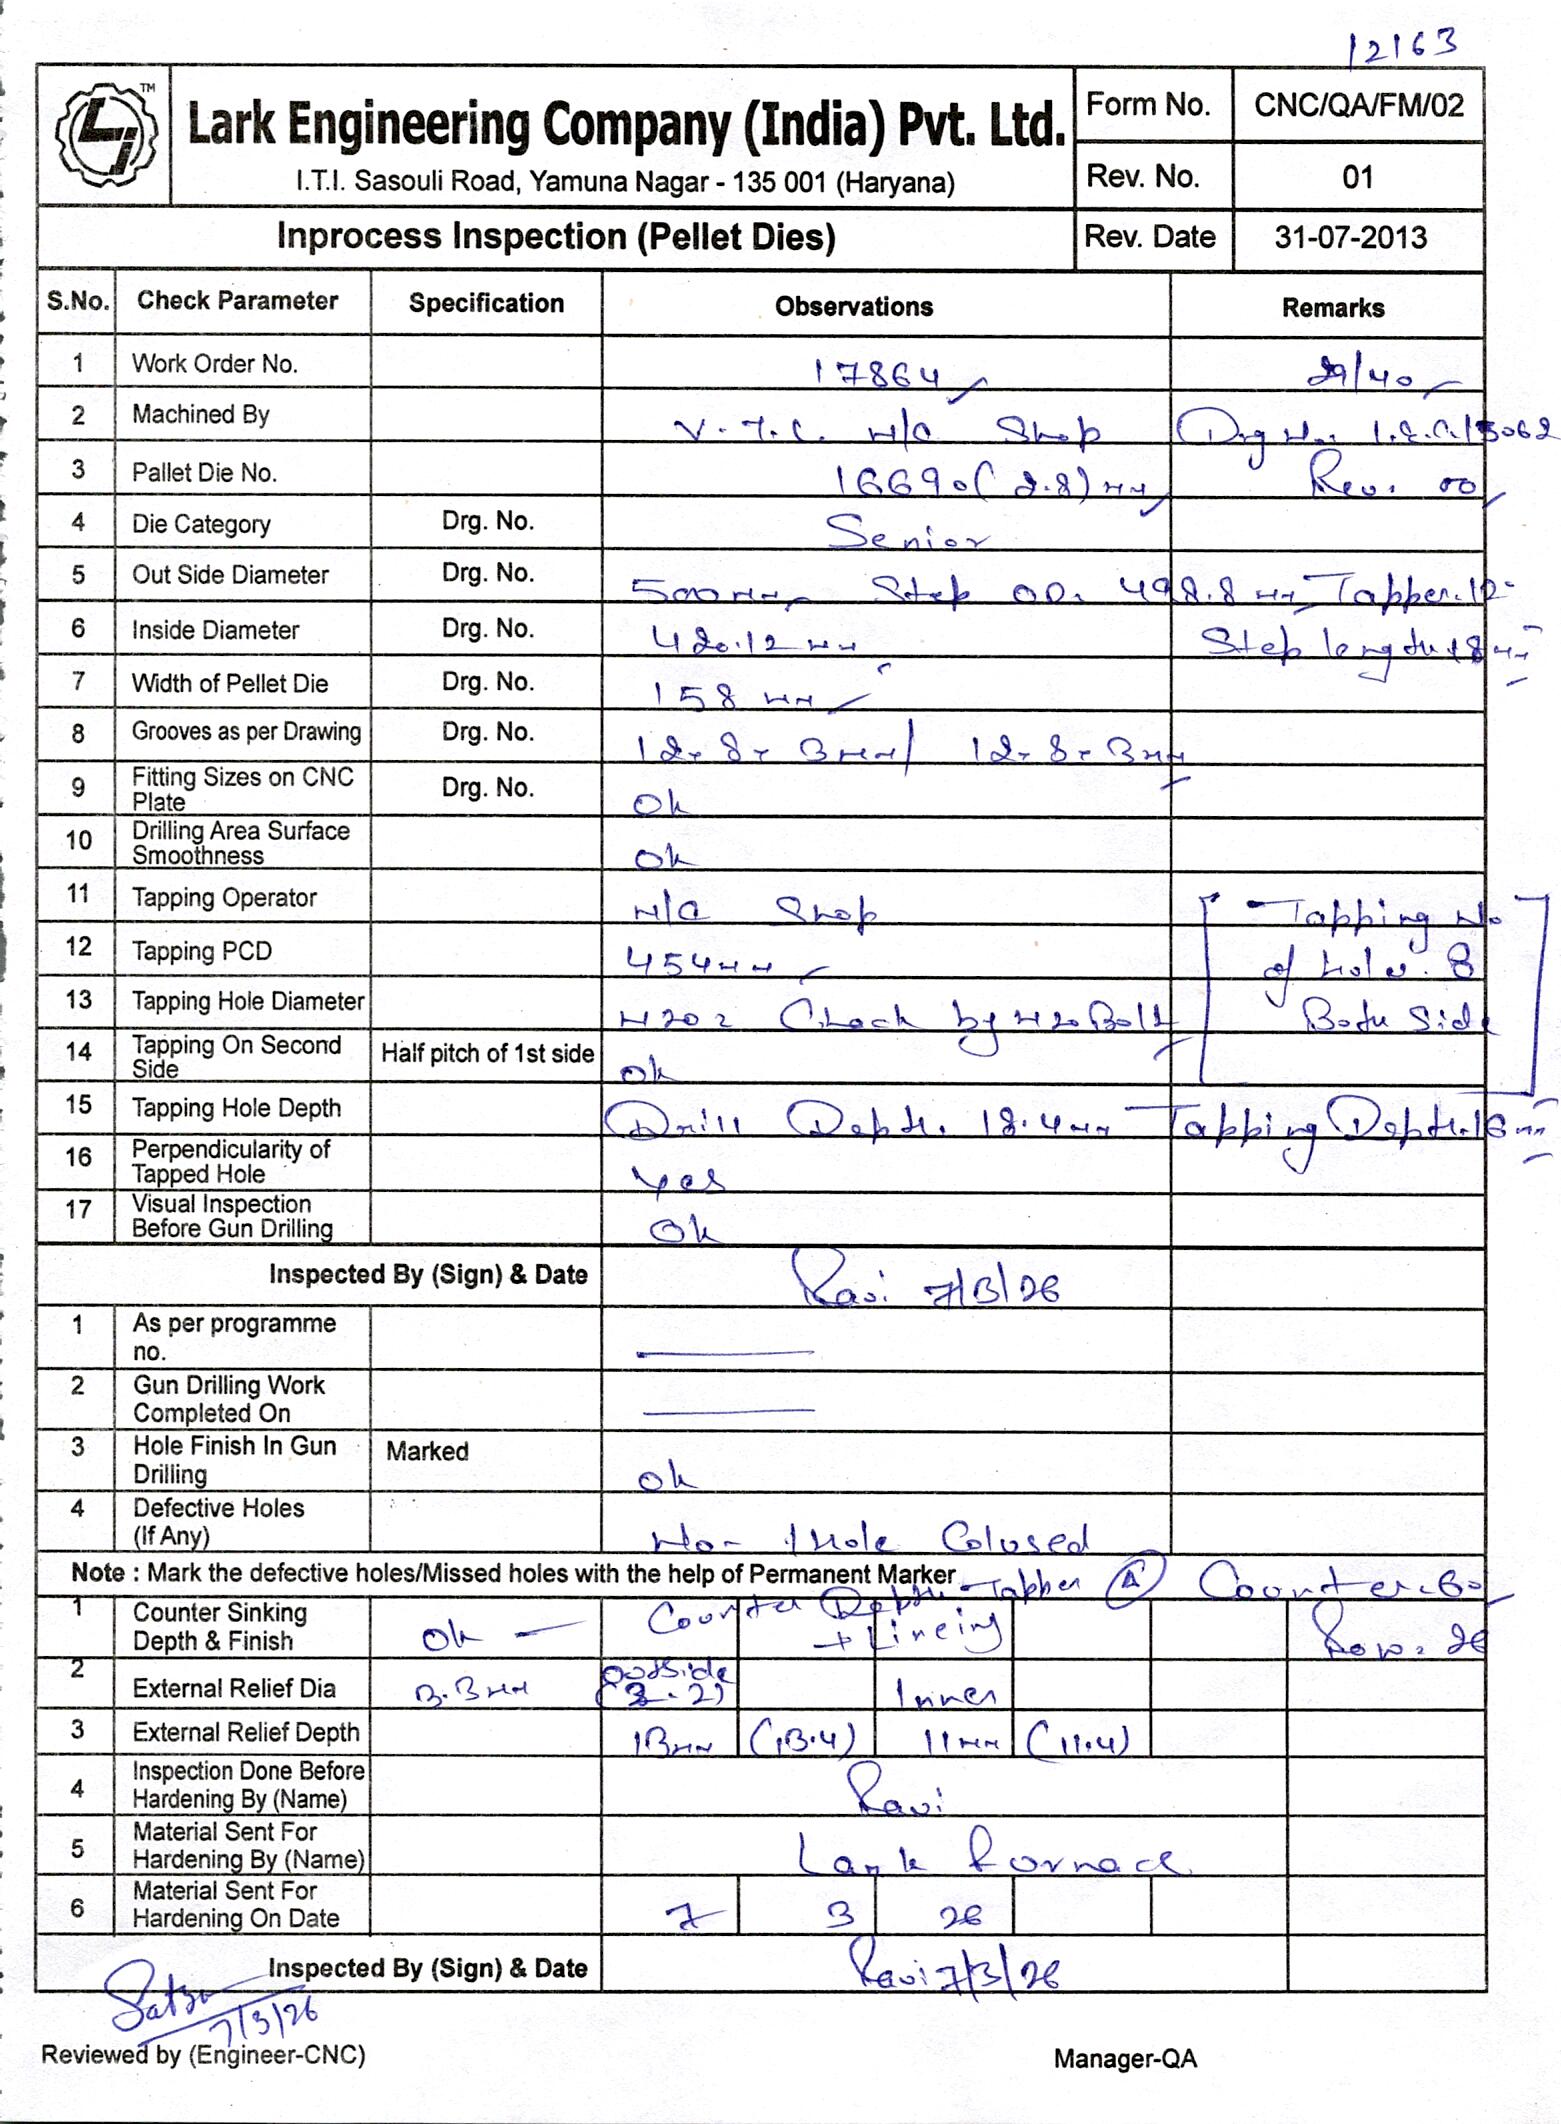 12163
TM
Lark Engineering Company (India) Pvt. Ltd.
I.T.I. Sasouli Road, Yamuna Nagar - 135 001 (Haryana)
Form No. CNC/QA/FM/02
Rev. No. 01
Inprocess Inspection (Pellet Dies)
Rev. Date 31-07-2013
S.No. Check Parameter Specification Observations Remarks
1 Work Order No. 17864 29/40
2 Machined By V.T.L. M/C Shop Drg No. L.E.C./5062
3 Pallet Die No. 16690 (2.8) mm Rev. 00
4 Die Category Drg. No. Senior
5 Out Side Diameter Drg. No. 500mm Step OD. 498.8 mm Tapper.12°
6 Inside Diameter Drg. No. 420.12 mm Step length 18 mm
7 Width of Pellet Die Drg. No. 158 mm
8 Grooves as per Drawing Drg. No. 12-8-3mm/ 12-8-3mm
9 Fitting Sizes on CNC Plate Drg. No. Ok
10 Drilling Area Surface Smoothness Ok
11 Tapping Operator M/C Shop Tapping No
12 Tapping PCD 454mm of hole. 8
13 Tapping Hole Diameter M20 = Check by M20 Bolt Both Side
14 Tapping On Second Side Half pitch of 1st side Ok
15 Tapping Hole Depth Drill Depth. 18.4mm Tapping Depth.16mm
16 Perpendicularity of Tapped Hole Yes
17 Visual Inspection Before Gun Drilling Ok
Inspected By (Sign) & Date Ravi 7/3/26
1 As per programme no.
2 Gun Drilling Work Completed On
3 Hole Finish In Gun Drilling Marked Ok
4 Defective Holes (If Any) No- 1 Hole Colused
Note : Mark the defective holes/Missed holes with the help of Permanent Marker
1 Counter Sinking Depth & Finish Ok Counter Depth Tapper A Counter.60
+ Lineing Row = 26
2 External Relief Dia 3.3mm Outside (3.2) Inner
3 External Relief Depth 13mm (13.4) 11mm (11.4)
4 Inspection Done Before Hardening By (Name) Ravi
5 Material Sent For Hardening By (Name) Lark Furnace
6 Material Sent For Hardening On Date 7 3 26
Inspected By (Sign) & Date Ravi 7/3/26
7/3/26
Reviewed by (Engineer-CNC) Manager-QA